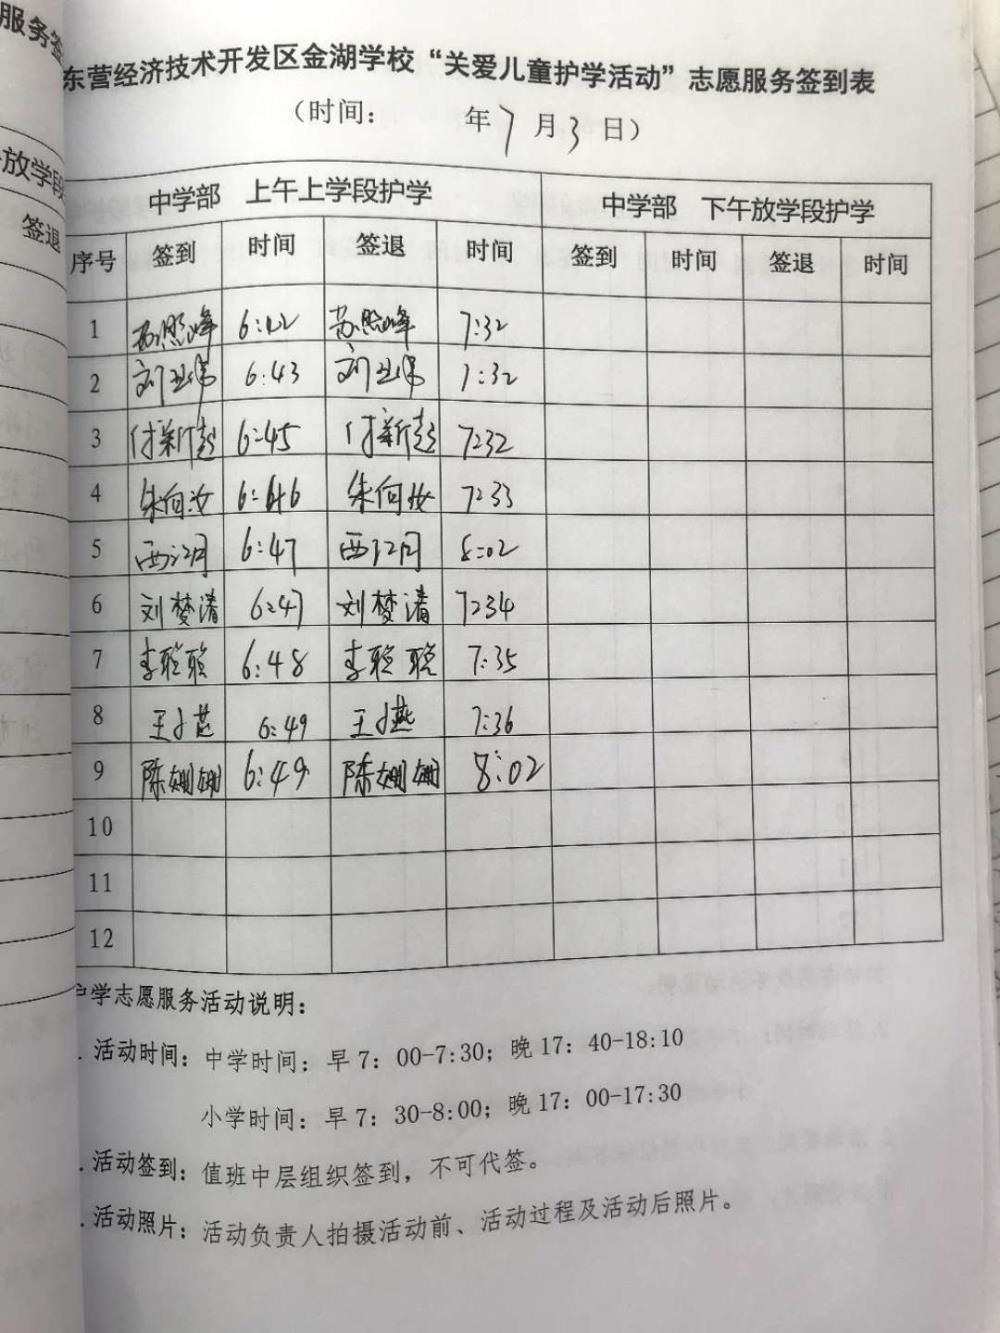 服务签
放学段
签退
东营经济技术开发区金湖学校“关爱儿童护学活动”志愿服务签到表
（时间： 年7月3日）
中学部 上午上学段护学 中学部 下午放学段护学
序号 签到 时间 签退 时间 签到 时间 签退 时间
1 苏照峰 苏照峰 7:32
2 6:43 1:32
3 付新超 6:45 付新超 7:32
4 朱向汝 6:46 朱向汝 7:33
5 西江月 6:47 西江月 8:02
6 刘梦清 6:47 刘梦清 7:34
7 李聪聪 6:48 李聪聪 7:35
8 王小燕 6:49 王小燕 7:36
9 陈姗姗 6:49 陈姗姗 8:02
10
11
12
护学志愿服务活动说明：
. 活动时间：中学时间：早7：00-7:30；晚17：40-18:10
小学时间：早7：30-8:00；晚17：00-17:30
. 活动签到：值班中层组织签到，不可代签。
. 活动照片：活动负责人拍摄活动前、活动过程及活动后照片。